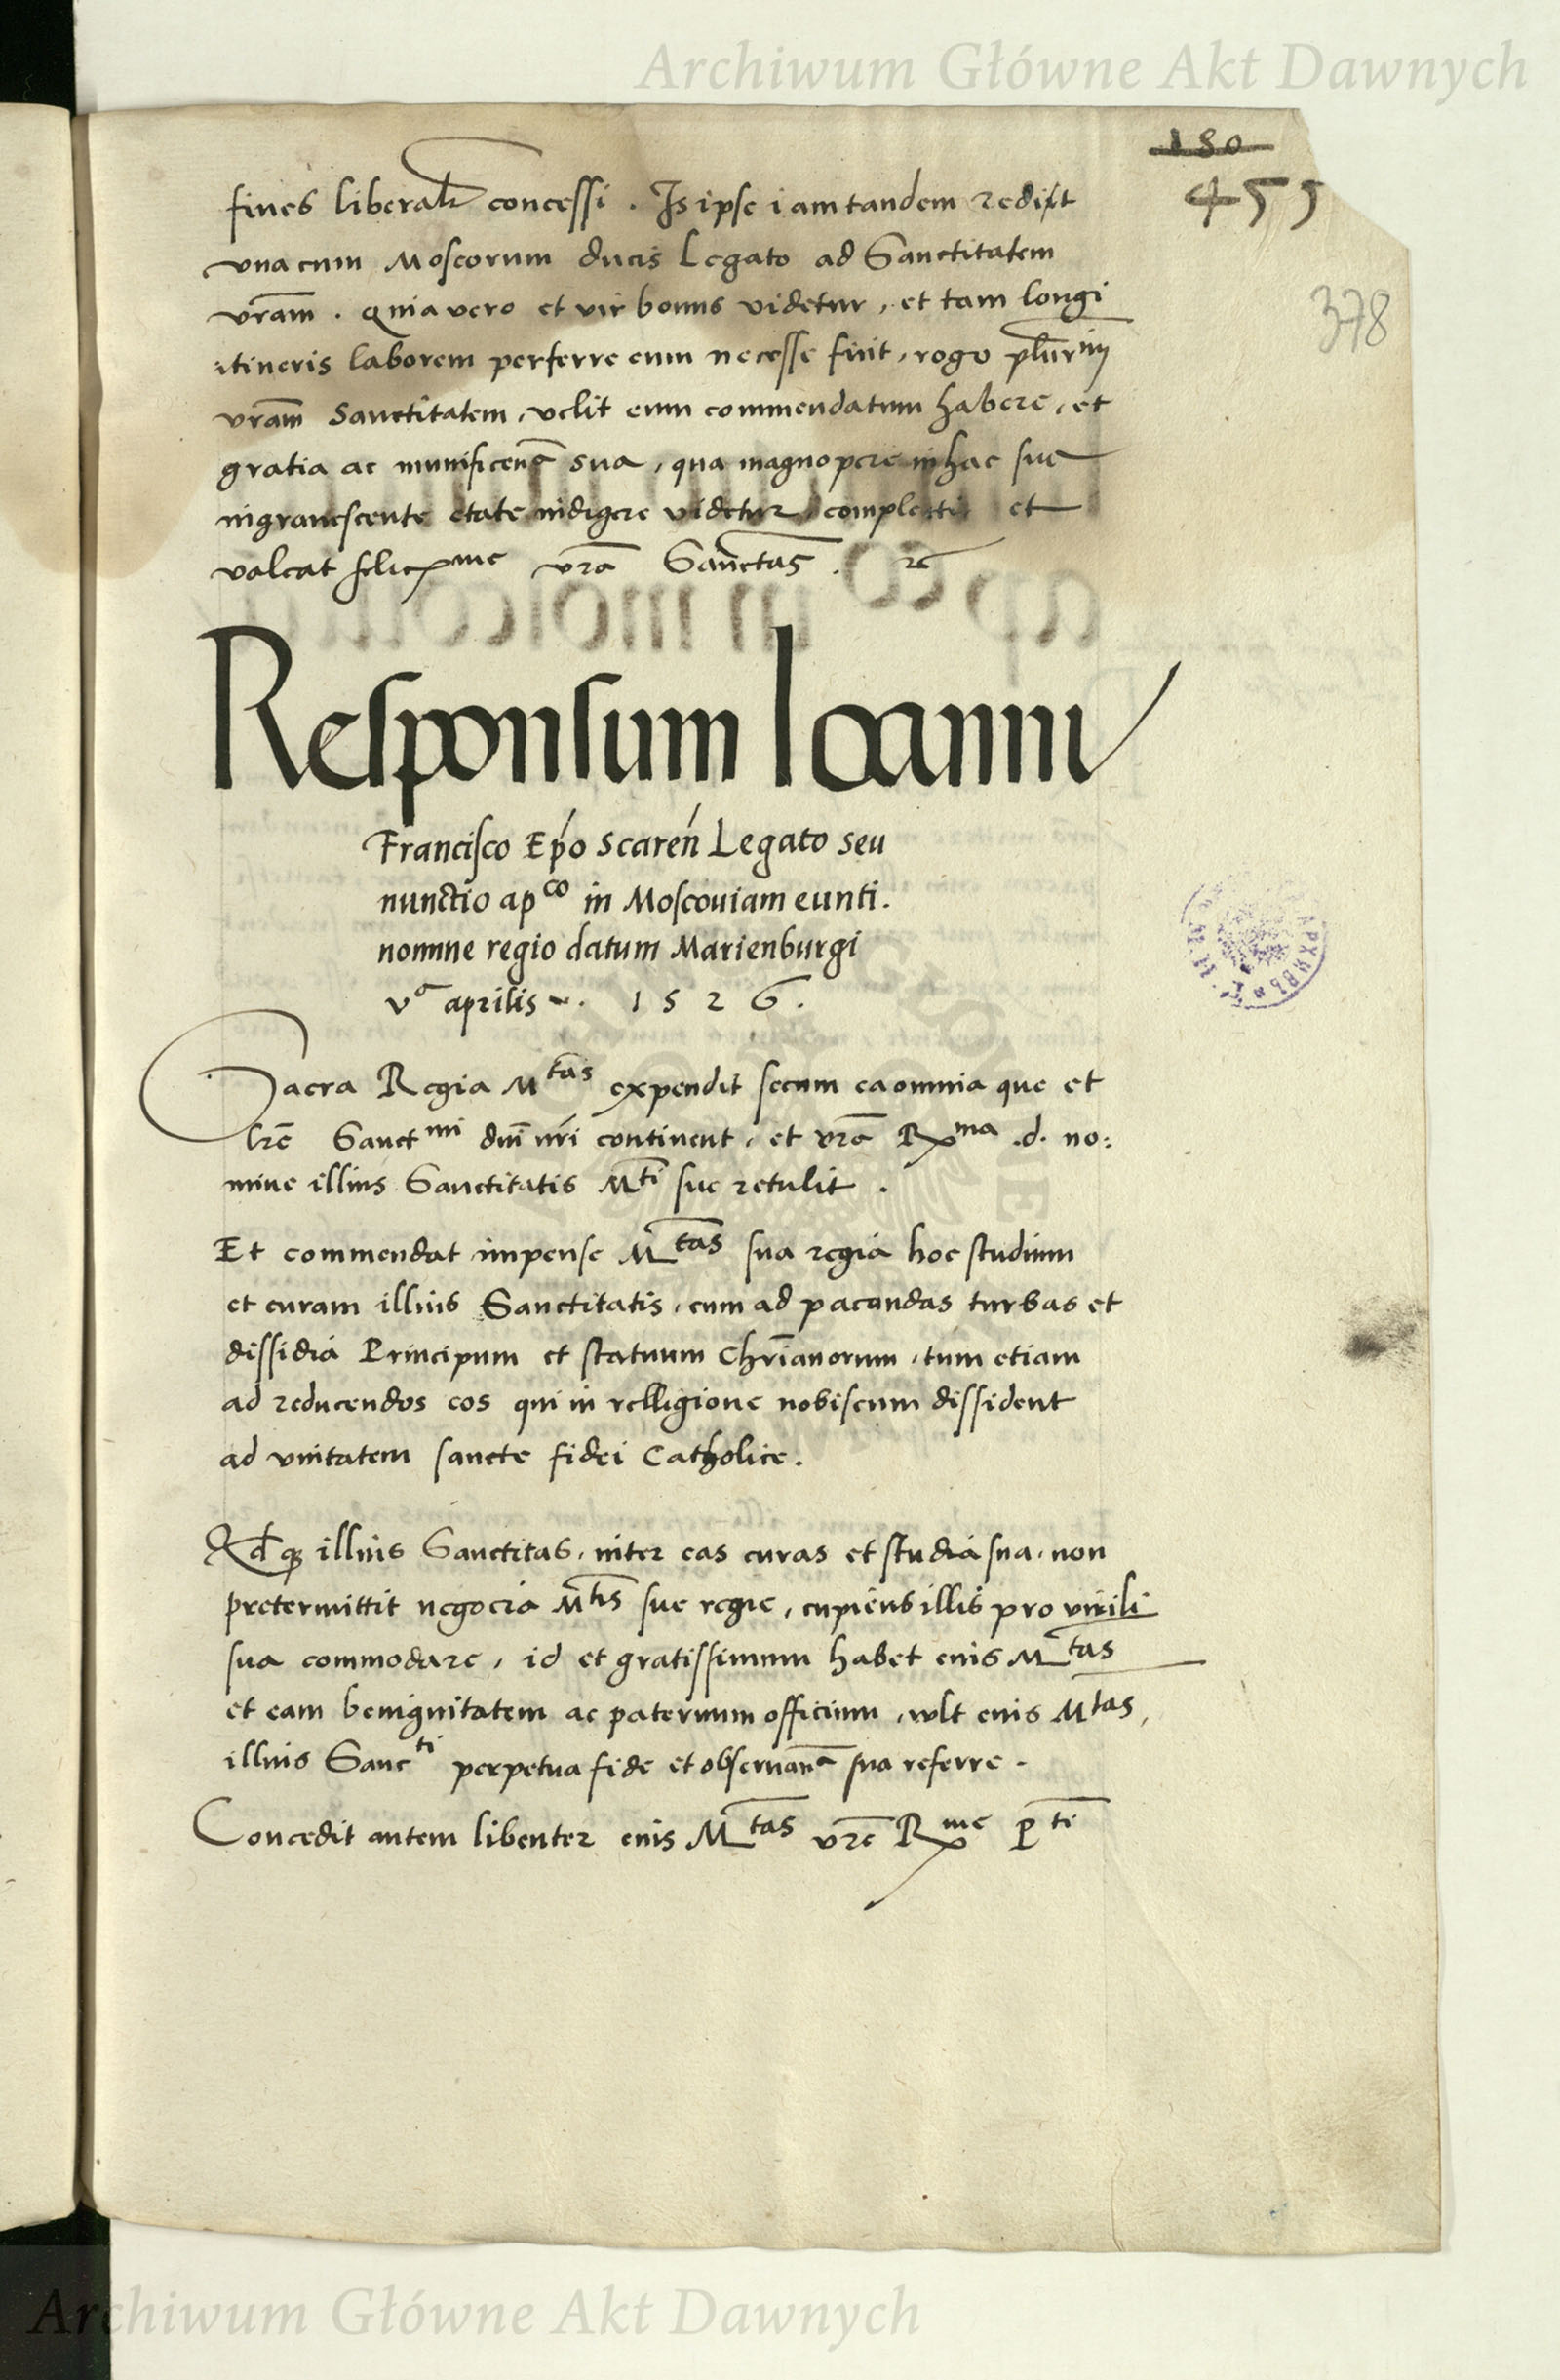 Archiwum Główne Akt Dawnych
180
455
378
fines liberalr concessi . Is ipse iam tandem rediit
vna cum Moscorum ducis Legato ad Sanctitatem
vram . quia vero et vir bonus videtur, et tam longi
itineris laborem perferre eum necesse fuit, rogo plurim
vram Sanctitatem, velit eum commendatum habere, et
gratia ac munificena sua, qua magnopere in hac sue
ingrauescente etate indigere videtur complecti et
valeat felicme vra Sanctas . rc
Responsum Ioanni
Francisco Epo Scaren Legato seu
nunctio apco in Moscouiam eunti.
nomine regio datum Marienburgi
va aprilis . 1526.
Sacra Regia Mtas expendit secum ea omnia que et
lre Sanctmi dni nri continent, et vra Rma .d. no:
mine illius Sanctitatis Mti sue retulit .
Et commendat impense Mtas sua regia hoc studium
et curam illius Sanctitatis, cum ad pacandas turbas et
dissidia Principum et statuum Chrianorum, tum etiam
ad reducendos eos qui in relligione nobiscum dissident
ad vnitatem sancte fidei Catholice.
Qd q illius Sanctitas, inter eas curas et studia sua, non
pretermittit negocia Mtis sue regie, cupiens illis pro virili
sua commodare, id et gratissimum habet eius Mtas
et eam benignitatem ac paternum officium, vult eius Mtas,
illius Sancti perpetua fide et obseruana sua referre .
Concedit autem libenter eius Mtas vre Rme pti
Archiwum Główne Akt Dawnych